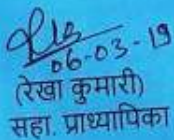 06-03-19
(रेखा कुमारी)
सहा. प्राध्यापिका